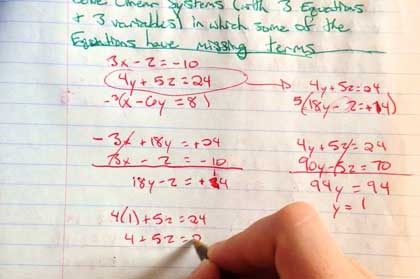 Solve Linear Systems (with 3 Equations
+ 3 variables) in which some of the
Equations have missing terms
3x - z = -10
4y + 5z = 24
-3(x - 6y = 8)
-3x + 18y = +24
3x - z = -10
18y - z = +14
4(1) + 5z = 24
4 + 5z = 2
4y + 5z = 24
5(18y - z = +14)
4y + 5z = 24
90y - 5z = 70
94y = 94
y = 1